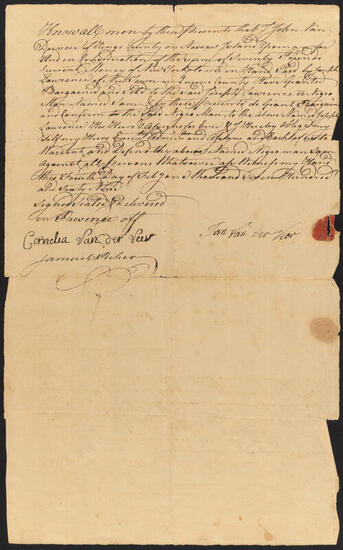 Know all men by these Presents that I John Van
Derveer of Kings County on Nassau Island Yeoman for
And in Consideration of the sum of Seventy Pounds
Current Money of New York to me in Hand Paid By Joseph
Lawrence of New Town in Queens County to Have Granted
Bargained and Sold to the said Joseph Lawrence A Negro
Man Named Sam By these Presents do grant Bargain
and Confirm to the said Negro Man to the Above named Joseph
Lawrence His Heirs Assigns for Ever I Hereby oblige
my Heirs
Warrant and Defend the above Named Negro man Sam
Against all Persons Whatsoever As Witness my Hand
this Fourth Day of one thousand Seven Hundred
and Sixty Nine
Signed Sealed & Delivered
In Presence off
Cornelia Van Der Veer
Jan Van der Veer